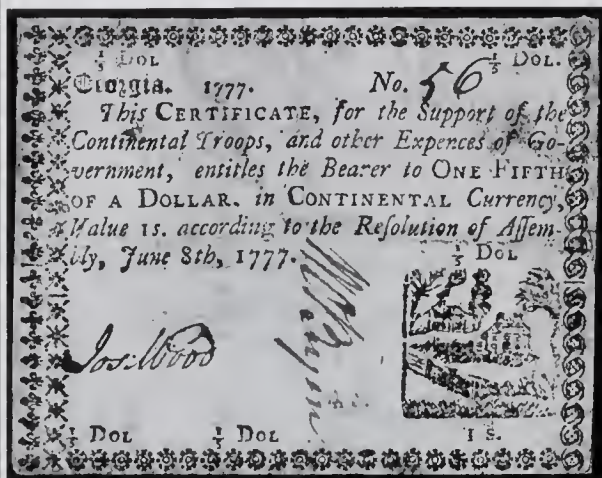 1/5 DOL 1/5 DOL.
Georgia. 1777. No. 56
This CERTIFICATE, for the Support of the
Continental Troops, and other Expences of Go-
vernment, entitles the Bearer to ONE FIFTH
OF A DOLLAR. in CONTINENTAL Currency,
Value 1s. according to the Reſolution of Aſſem-
bly, June 8th, 1777.
1/5 DOL
Jos: Wood
1/5 DOL 1/5 DOL 1 S.